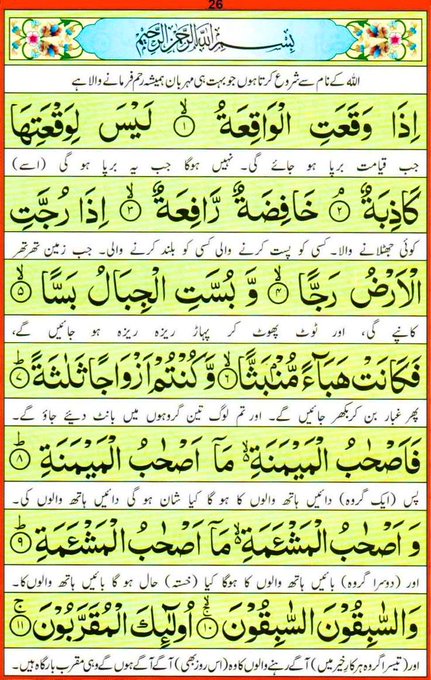 26
بِسْمِ اللهِ الرَّحْمٰنِ الرَّحِيْمِ
اللہ کے نام سے شروع کرتا ہوں جو بہت ہی مہربان ہمیشہ رحم فرمانے والا ہے
اِذَا وَقَعَتِ الْوَاقِعَةُ ۙ﴿۱﴾ لَيْسَ لِوَقْعَتِهَا
جب قیامت برپا ہو جائے گی۔ نہیں ہوگا جب یہ برپا ہو گی (اسے)
كَاذِبَةٌ ۘ﴿۲﴾ خَافِضَةٌ رَّافِعَةٌ ۙ﴿۳﴾ اِذَا رُجَّتِ
کوئی جھٹلانے والا۔ کسی کو پست کرنے والی کسی کو بلند کرنے والی۔ جب زمین تھرتھر
الْاَرْضُ رَجًّا ۙ﴿۴﴾ وَّ بُسَّتِ الْجِبَالُ بَسًّا ۙ﴿۵﴾
کانپے گی، اور ٹوٹ پھوٹ کر پہاڑ ریزہ ریزہ ہو جائیں گے،
فَكَانَتْ هَبَآءً مُّنْۢبَثًّا ۙ﴿۶﴾ وَّ كُنْتُمْ اَزْوَاجًا ثَلٰثَةً ؕ﴿۷﴾
پھر غبار بن کر بکھر جائیں گے۔ اور تم لوگ تین گروہوں میں بانٹ دیئے جاؤ گے۔
فَاَصْحٰبُ الْمَيْمَنَةِ ۙ۬ مَاۤ اَصْحٰبُ الْمَيْمَنَةِ ؕ﴿۸﴾
پس (ایک گروہ) دائیں ہاتھ والوں کا ہو گا کیا شان ہو گی دائیں ہاتھ والوں کی۔
وَ اَصْحٰبُ الْمَشْـَٔمَةِ ۙ۬ مَاۤ اَصْحٰبُ الْمَشْـَٔمَةِ ؕ﴿۹﴾
اور (دوسرا گروہ) بائیں ہاتھ والوں کا ہوگا کیا (خستہ) حال ہو گا بائیں ہاتھ والوں کا۔
وَالسّٰبِقُوْنَ السّٰبِقُوْنَ ۚۙ﴿۱۰﴾ اُولٰٓئِكَ الْمُقَرَّبُوْنَ ۚ﴿۱۱﴾
اور (تیسرا گروہ ہر کار خیر میں) آگے رہنے والوں کا وہ (اس روز بھی) آگے آگے ہوں گے وہی مقرب بارگاہ ہیں۔